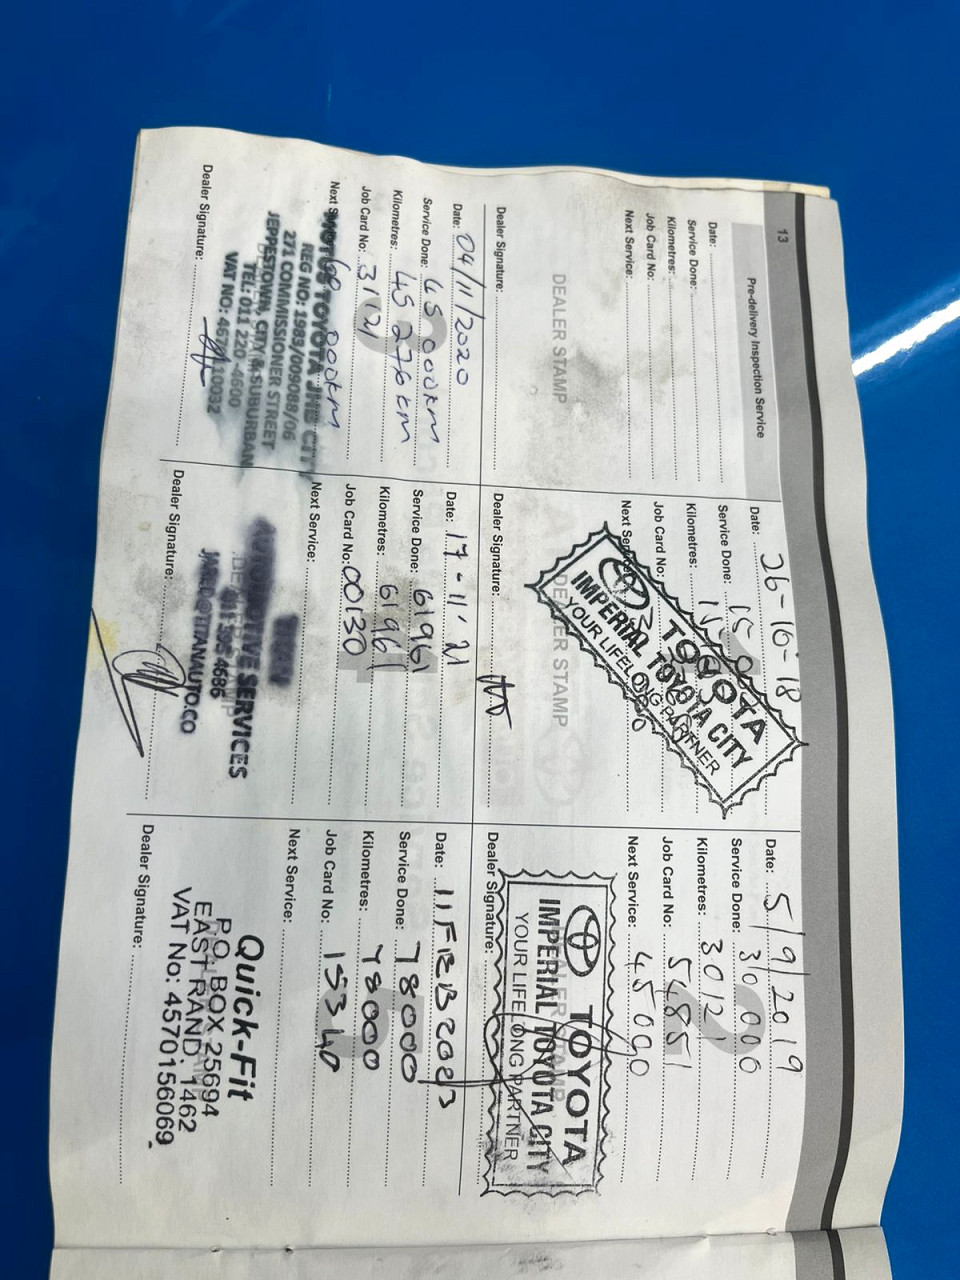 13
Pre-delivery Inspection Service
Date:
Service Done:
Kilometres:
Job Card No:
Next Service:
DEALER STAMP
Dealer Signature:
Date: 26-10-18
Service Done: 15
Kilometres:
Job Card No:
Next Service:
TOYOTA
IMPERIAL TOYOTA CITY
YOUR LIFELONG PARTNER
DEALER STAMP
Dealer Signature:
2
Date: 5/9/2019
Service Done: 30 000
Kilometres: 30121
Job Card No: 54851
Next Service: 45 000
TOYOTA
IMPERIAL TOYOTA CITY
YOUR LIFELONG PARTNER
Dealer Signature:
3
Date: 04/11/2020
Service Done: 45 000km
Kilometres: 45 276km
Job Card No: 31121
Next Service: 60 000km
MOTUS TOYOTA JHB CITY
REG NO: 1983/009088/06
271 COMMISSIONER STREET
JEPPESTOWN, CITY & SUBURBAN
TEL: 011 220-4600
Dealer Signature:
Date: 17-11'21
Service Done: 61961
Kilometres: 61961
Job Card No: 00130
Next Service:
SERVICES
4686
Dealer Signature:
5
Date: 11 FEB 2023
Service Done: 78000
Kilometres: 78000
Job Card No: 15340
Next Service:
Quick-Fit
P.O. BOX 25694
EAST RAND. 1462
VAT No: 4570156069
Dealer Signature: